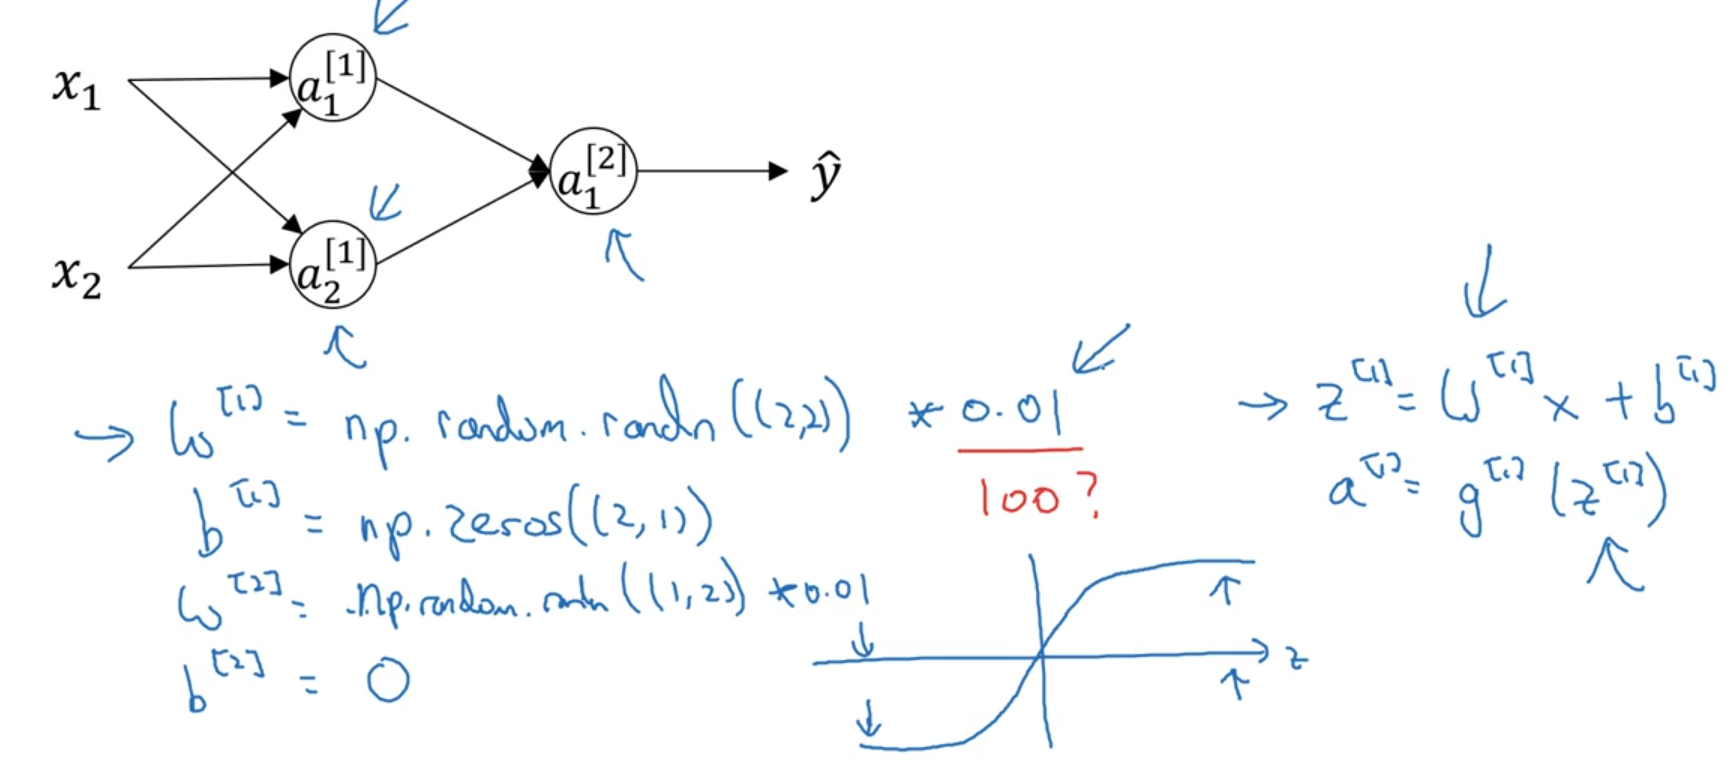 x₁
a₁^[1]
x₂
a₂^[1]
a₁^[2]
ŷ
W^[1] = np.random.randn((2,2)) * 0.01
100?
b^[1] = np.zeros((2,1))
W^[2] = np.random.randn((1,2)) * 0.01
b^[2] = 0
z^[1] = W^[1] x + b^[1]
a^[1] = g^[1](z^[1])
z